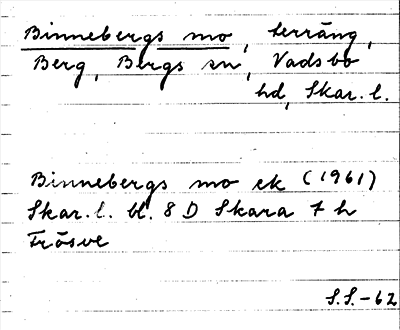 Binnebergs mo, terräng,
Berg, Bergs sn, Vadsbo
hd, Skar. l.
Binnebergs mo ek (1961)
Skar. l. bl. 8 D Skara 7 h
Frösve
S.S.-62